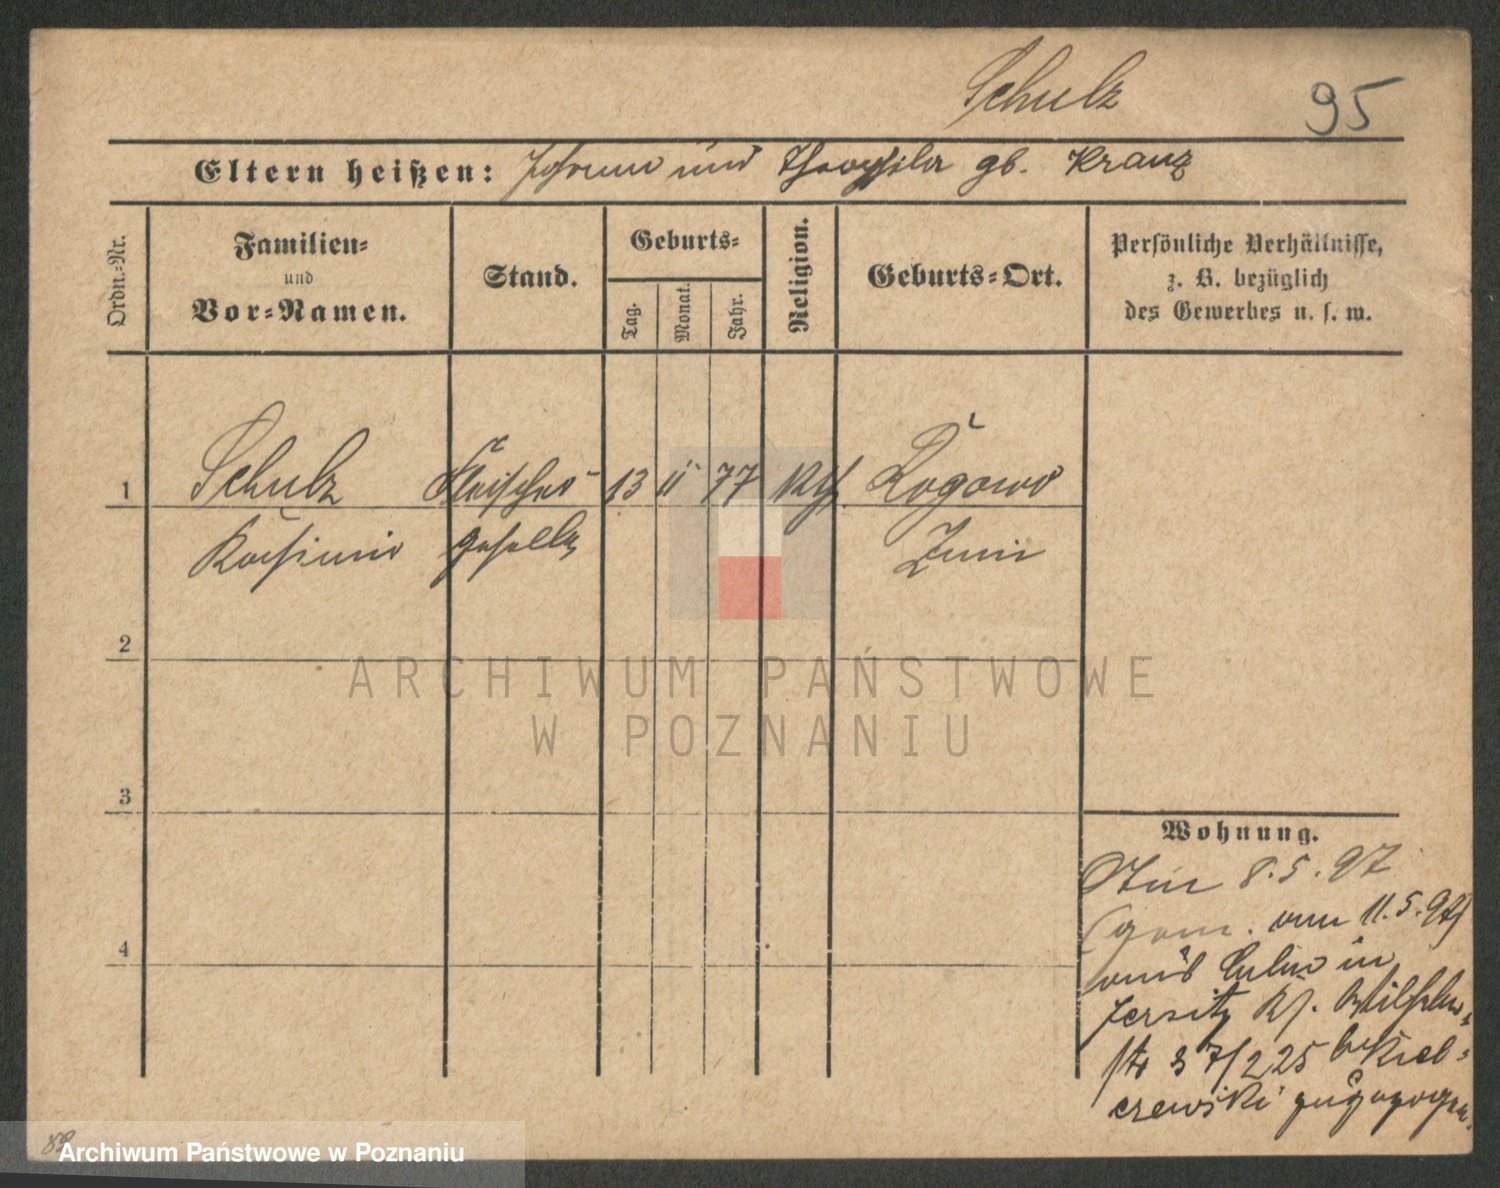 Schulz 95
Eltern heißen: Johann und Theophila gb. Kranz
Ordn.-Nr.
Familien-
und
Vor-Namen.
Stand.
Geburts-
Tag.
Monat.
Jahr.
Religion.
Geburts-Ort.
Persönliche Verhältnisse,
z. B. bezüglich
des Gewerbes u. s. w.
1 Schulz Fleischer- 13 11 77 Kth Rogowo
Kasimir geselle Znin
2
3
4
ARCHIWUM PAŃSTWOWE
W POZNANIU
Wohnung.
8.5.97
(gem. vom 11.5.97)
in
Jersitz Kr. Wilhelm-
str 37/225 b. Kiel-
czewski zugezogen.
Archiwum Państwowe w Poznaniu